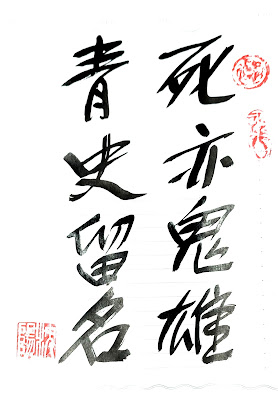 死亦鬼雄
青史留名